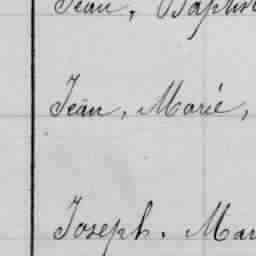 Jean, Bapti
Jean, Marié,
Joseph. Mar